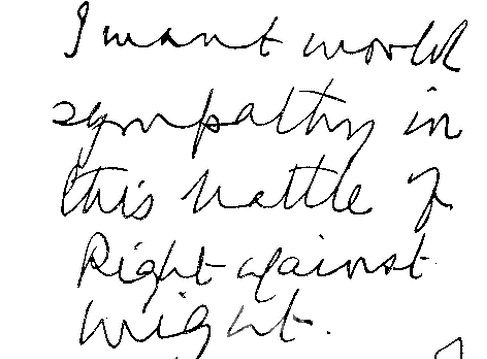 I want world
sympathy in
this battle of
Right against
might.